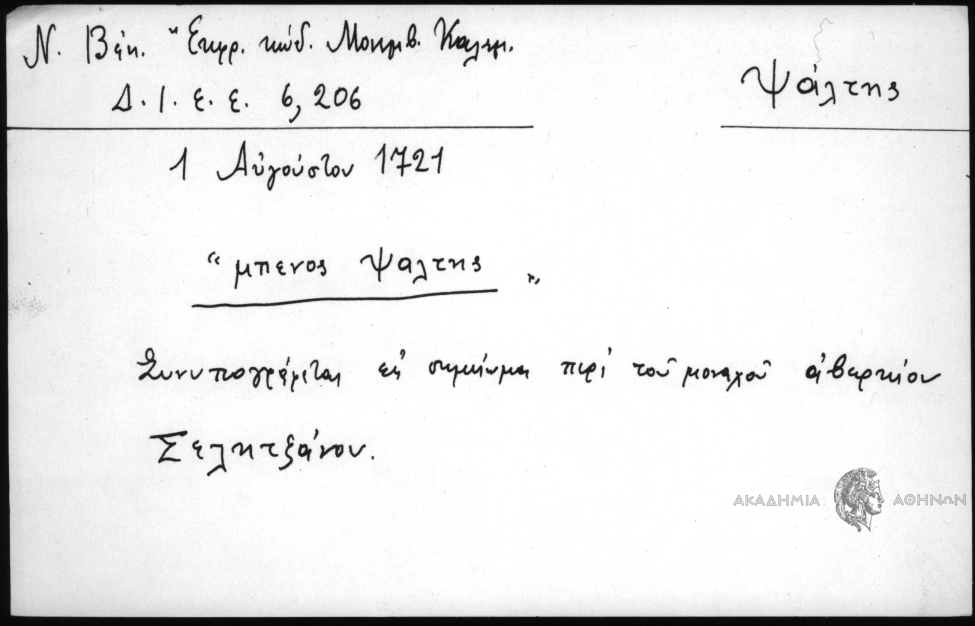 Ν. Βέη. "Εκφρ. κώδ. Μονεμβ. Καλαμ.
Δ. Ι. Ε. Ε. 6, 206
Ψάλτης
1 Αὐγούστου 1721
"μπενος ψαλτης"
Συνυπογράφεται εἰς σημείωμα περὶ τοῦ μοναχοῦ ἀβερκίου
Σελητζάνου.
ΑΚΑΔΗΜΙΑ ΑΘΗΝΩΝ